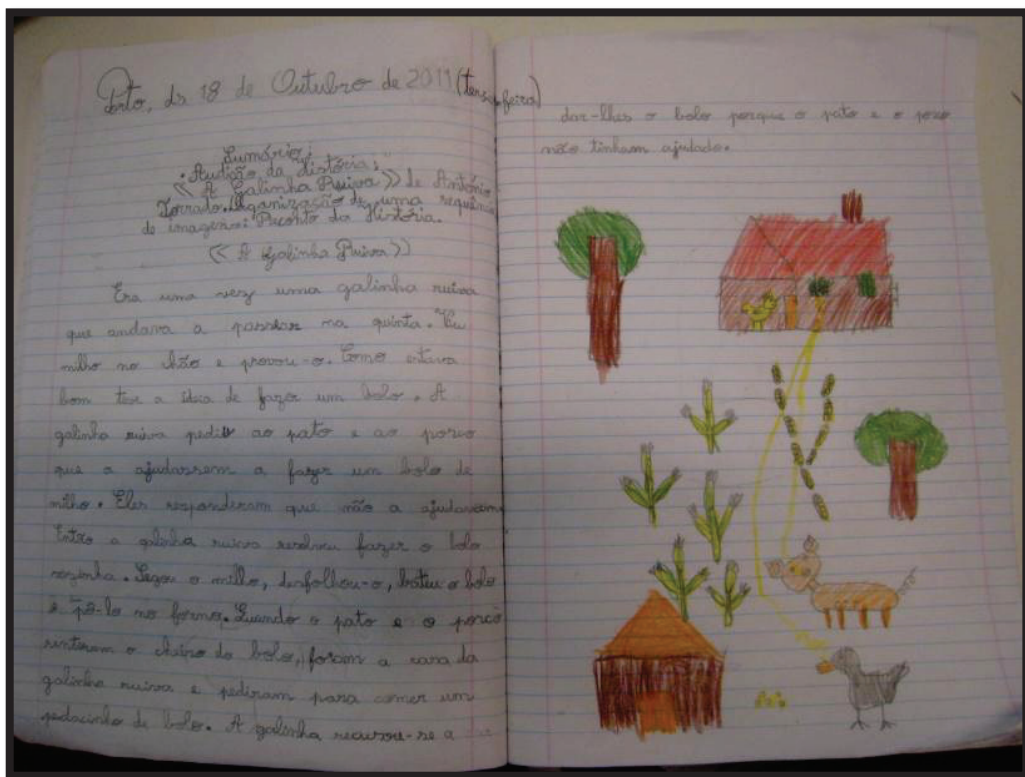 Porto, ds 18 de Outubro de 2011 (terça-feira)
Sumário:
• Audição da história:
« A Galinha Ruiva » de António
Torrado. Organização de uma sequência
de imagens: Reconto da História.
« A Galinha Ruiva »
Era uma vez uma galinha ruiva
que andava a passear na quinta. Viu
milho no chão e provou-o. Como estava
bom teve a ideia de fazer um bolo. A
galinha ruiva pediu ao pato e ao porco
que a ajudassem a fazer um bolo de
milho. Eles responderam que não a ajudavam
Então a galinha ruiva resolveu fazer o bolo
sozinha. Segou o milho, desfolhou-o, bateu o bolo
e pô-lo no forno. Quando o pato e o porco
sentiram o cheiro do bolo, foram a casa da
galinha ruiva e pediram para comer um
pedacinho de bolo. A galinha recusou-se a
dar-lhes o bolo porque o pato e o porco
não tinham ajudado.